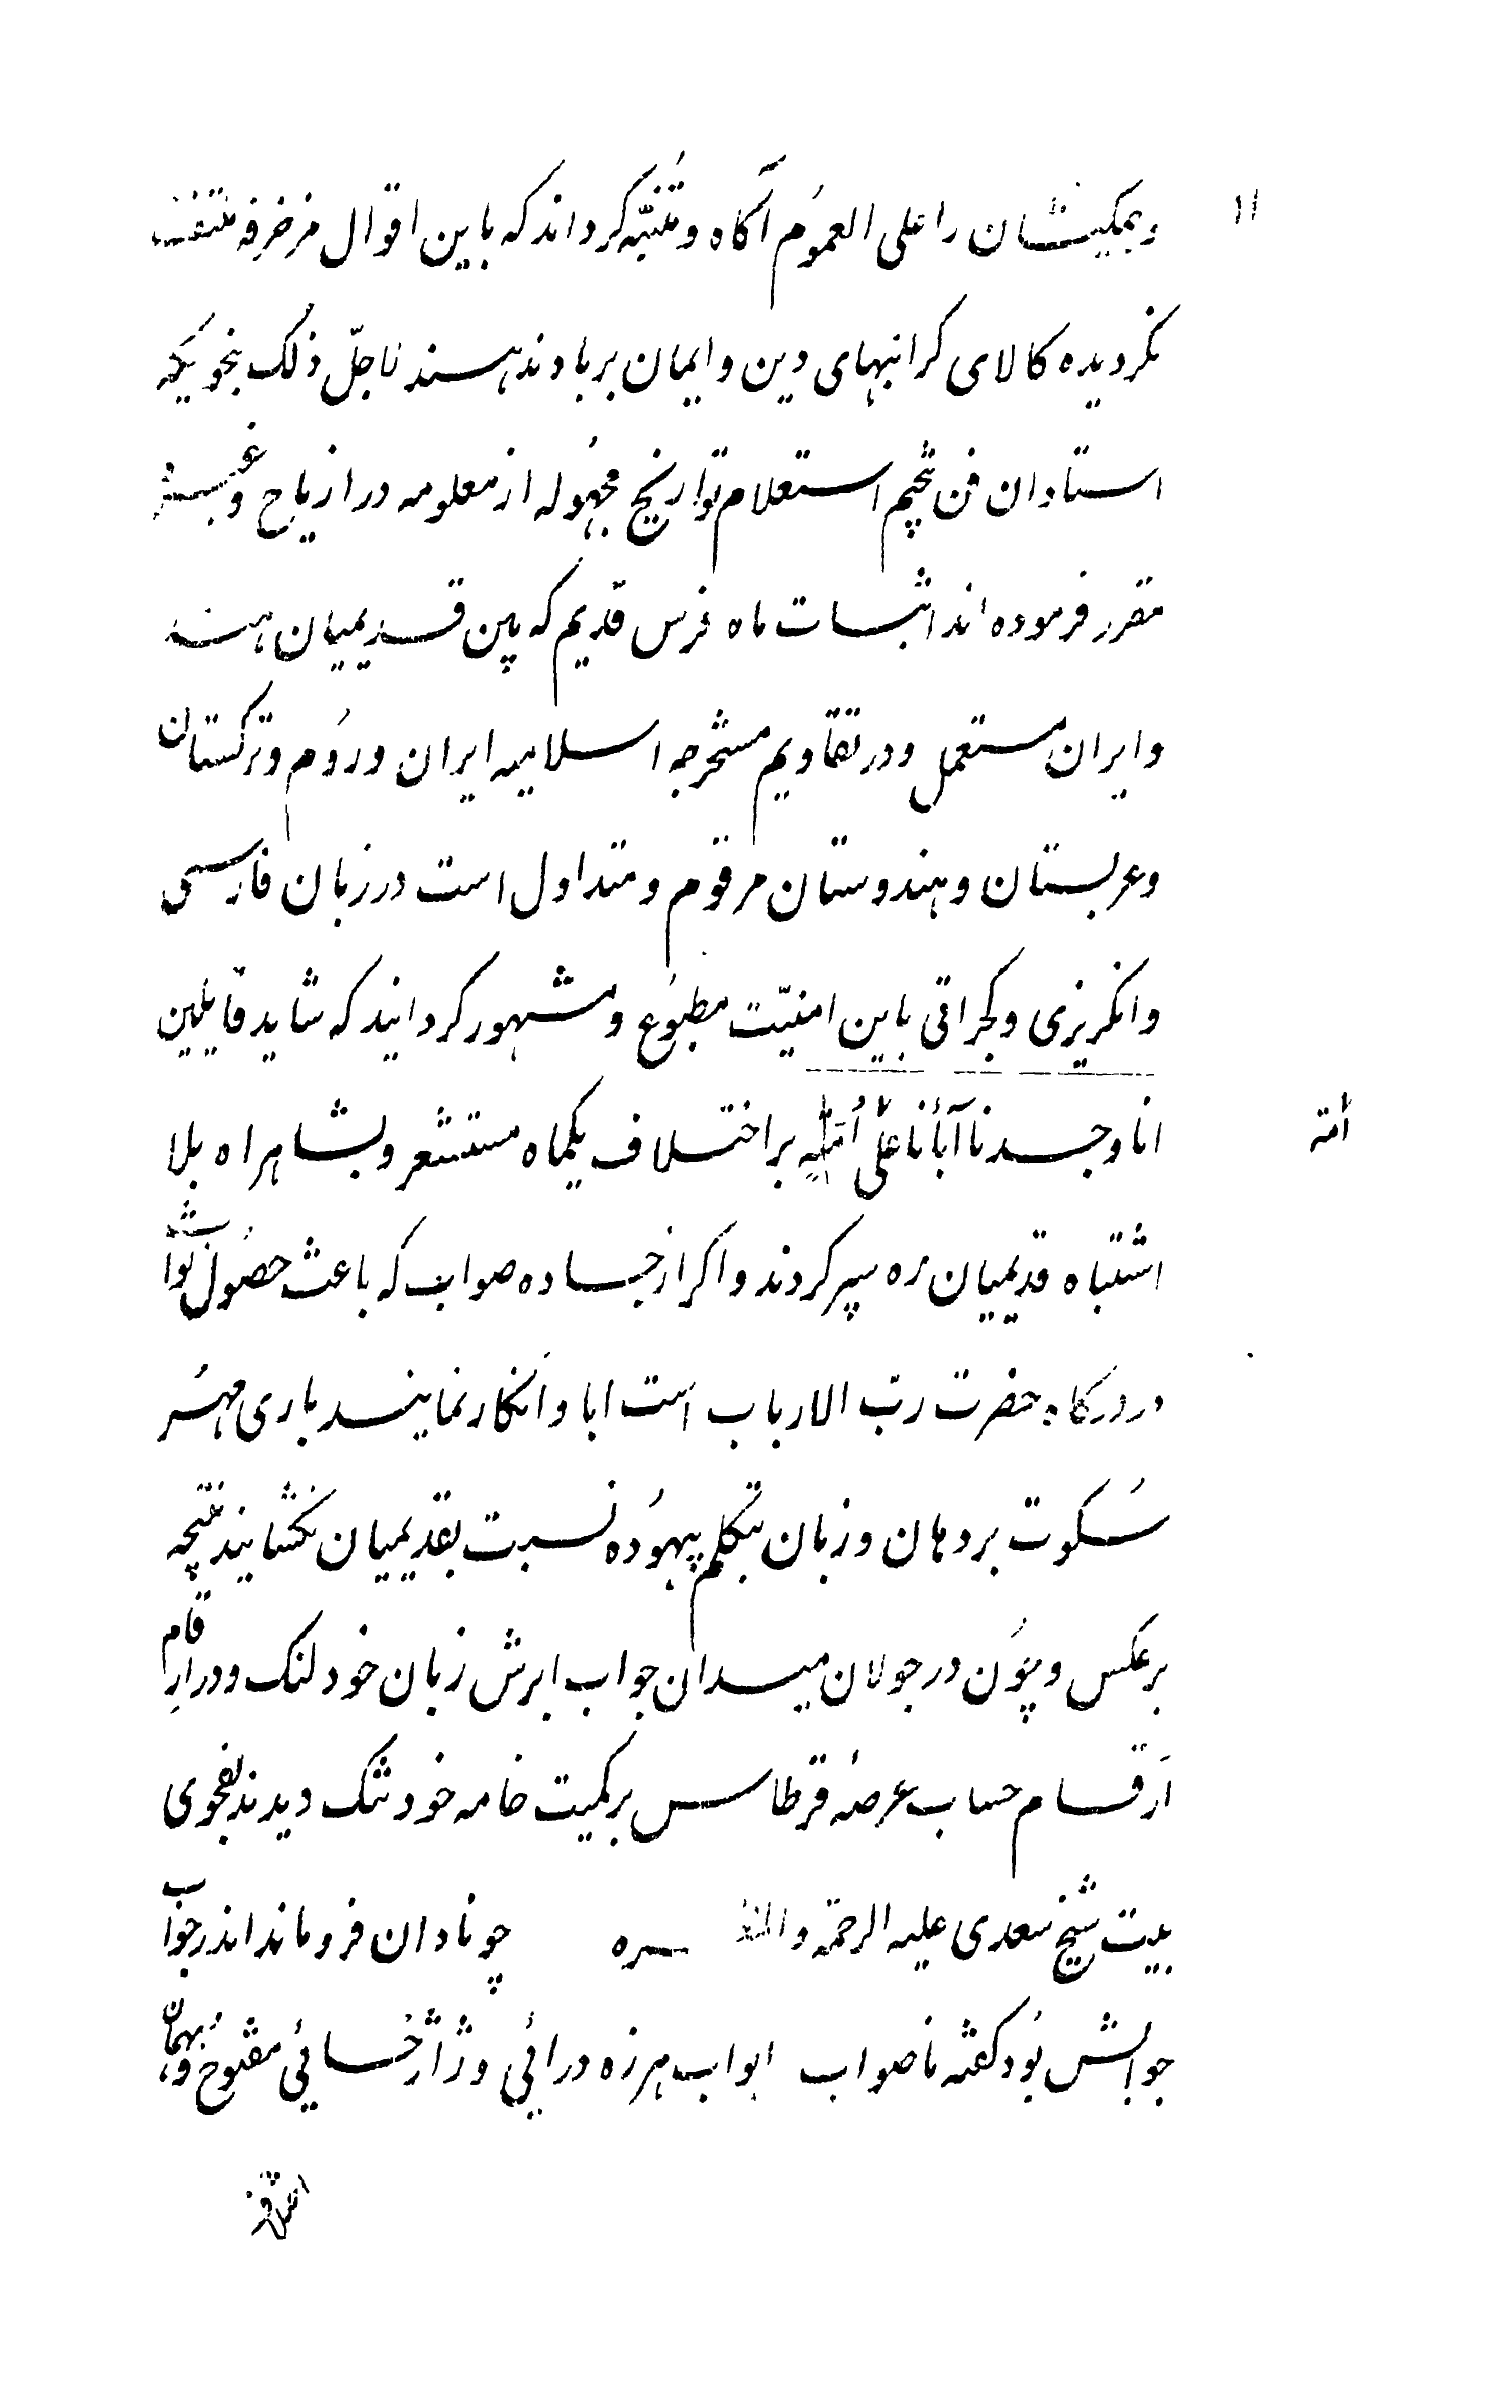 ١١
وهمکیشان را علی العمُوم آکاه و مُتنبّه کرداند که باین اقوال مزخرفه ملتفت
نکردیده کالای کرانبهای دین و ایمان برباد ندهند ناجلّ ذلک بنحویکه
استادان فن تنجیم استعلام تواریخ مجهُوله از معلومه در ازیاج و غیره
مقرر فرموده اند اثبات ماه فرس قدیم که بین قدیمیان هند
و ایران مستعمل و در تقاویم مستخرجه اسلامیه ایران و رُوم و ترکستان
و عربستان و هندوستان مرقوم و متداول است در زبان فارسی
و انکریزی و کجراتی باین امنیّت مطبوُع و مشهور کردانید که شاید قایلین
انا وجدنا آبأنا علیٰ اُمّةٍ بر اختلاف یکماه مستشعر و بشاهراه بلا
اُمة
اشتباه قدیمیان ره سپر کردند و اکر از جاده صواب که باعث حصُول ثواب
در درکاه حضرت ربّ الارباب است ابا و اَنکار نمایند باری مهُر
سُکوت بر دهان و زبان بتکلم بیهوُده نسبت بقدیمیان نکشایند نتیجه
برعکس و چوُن در جولان میدان جواب ابرش زبان خود لنک و در ارقام
اَرقام حساب عرصهٔ قرطاس بر کمیت خامه خود تنک دیدند بفحوی
بیت شیخ سعدی علیه الرحمة و المغفـــره چو نادان فرو ماند اندر جواب
جوابش بُود کفته ناصواب ابواب هرزه درائي و ژاژ خائي مفتوُح و بُهتان